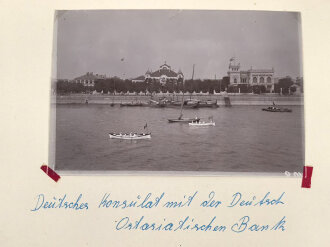 Deutsches Konsulat mit der Deutsch
Ostasiatischen Bank